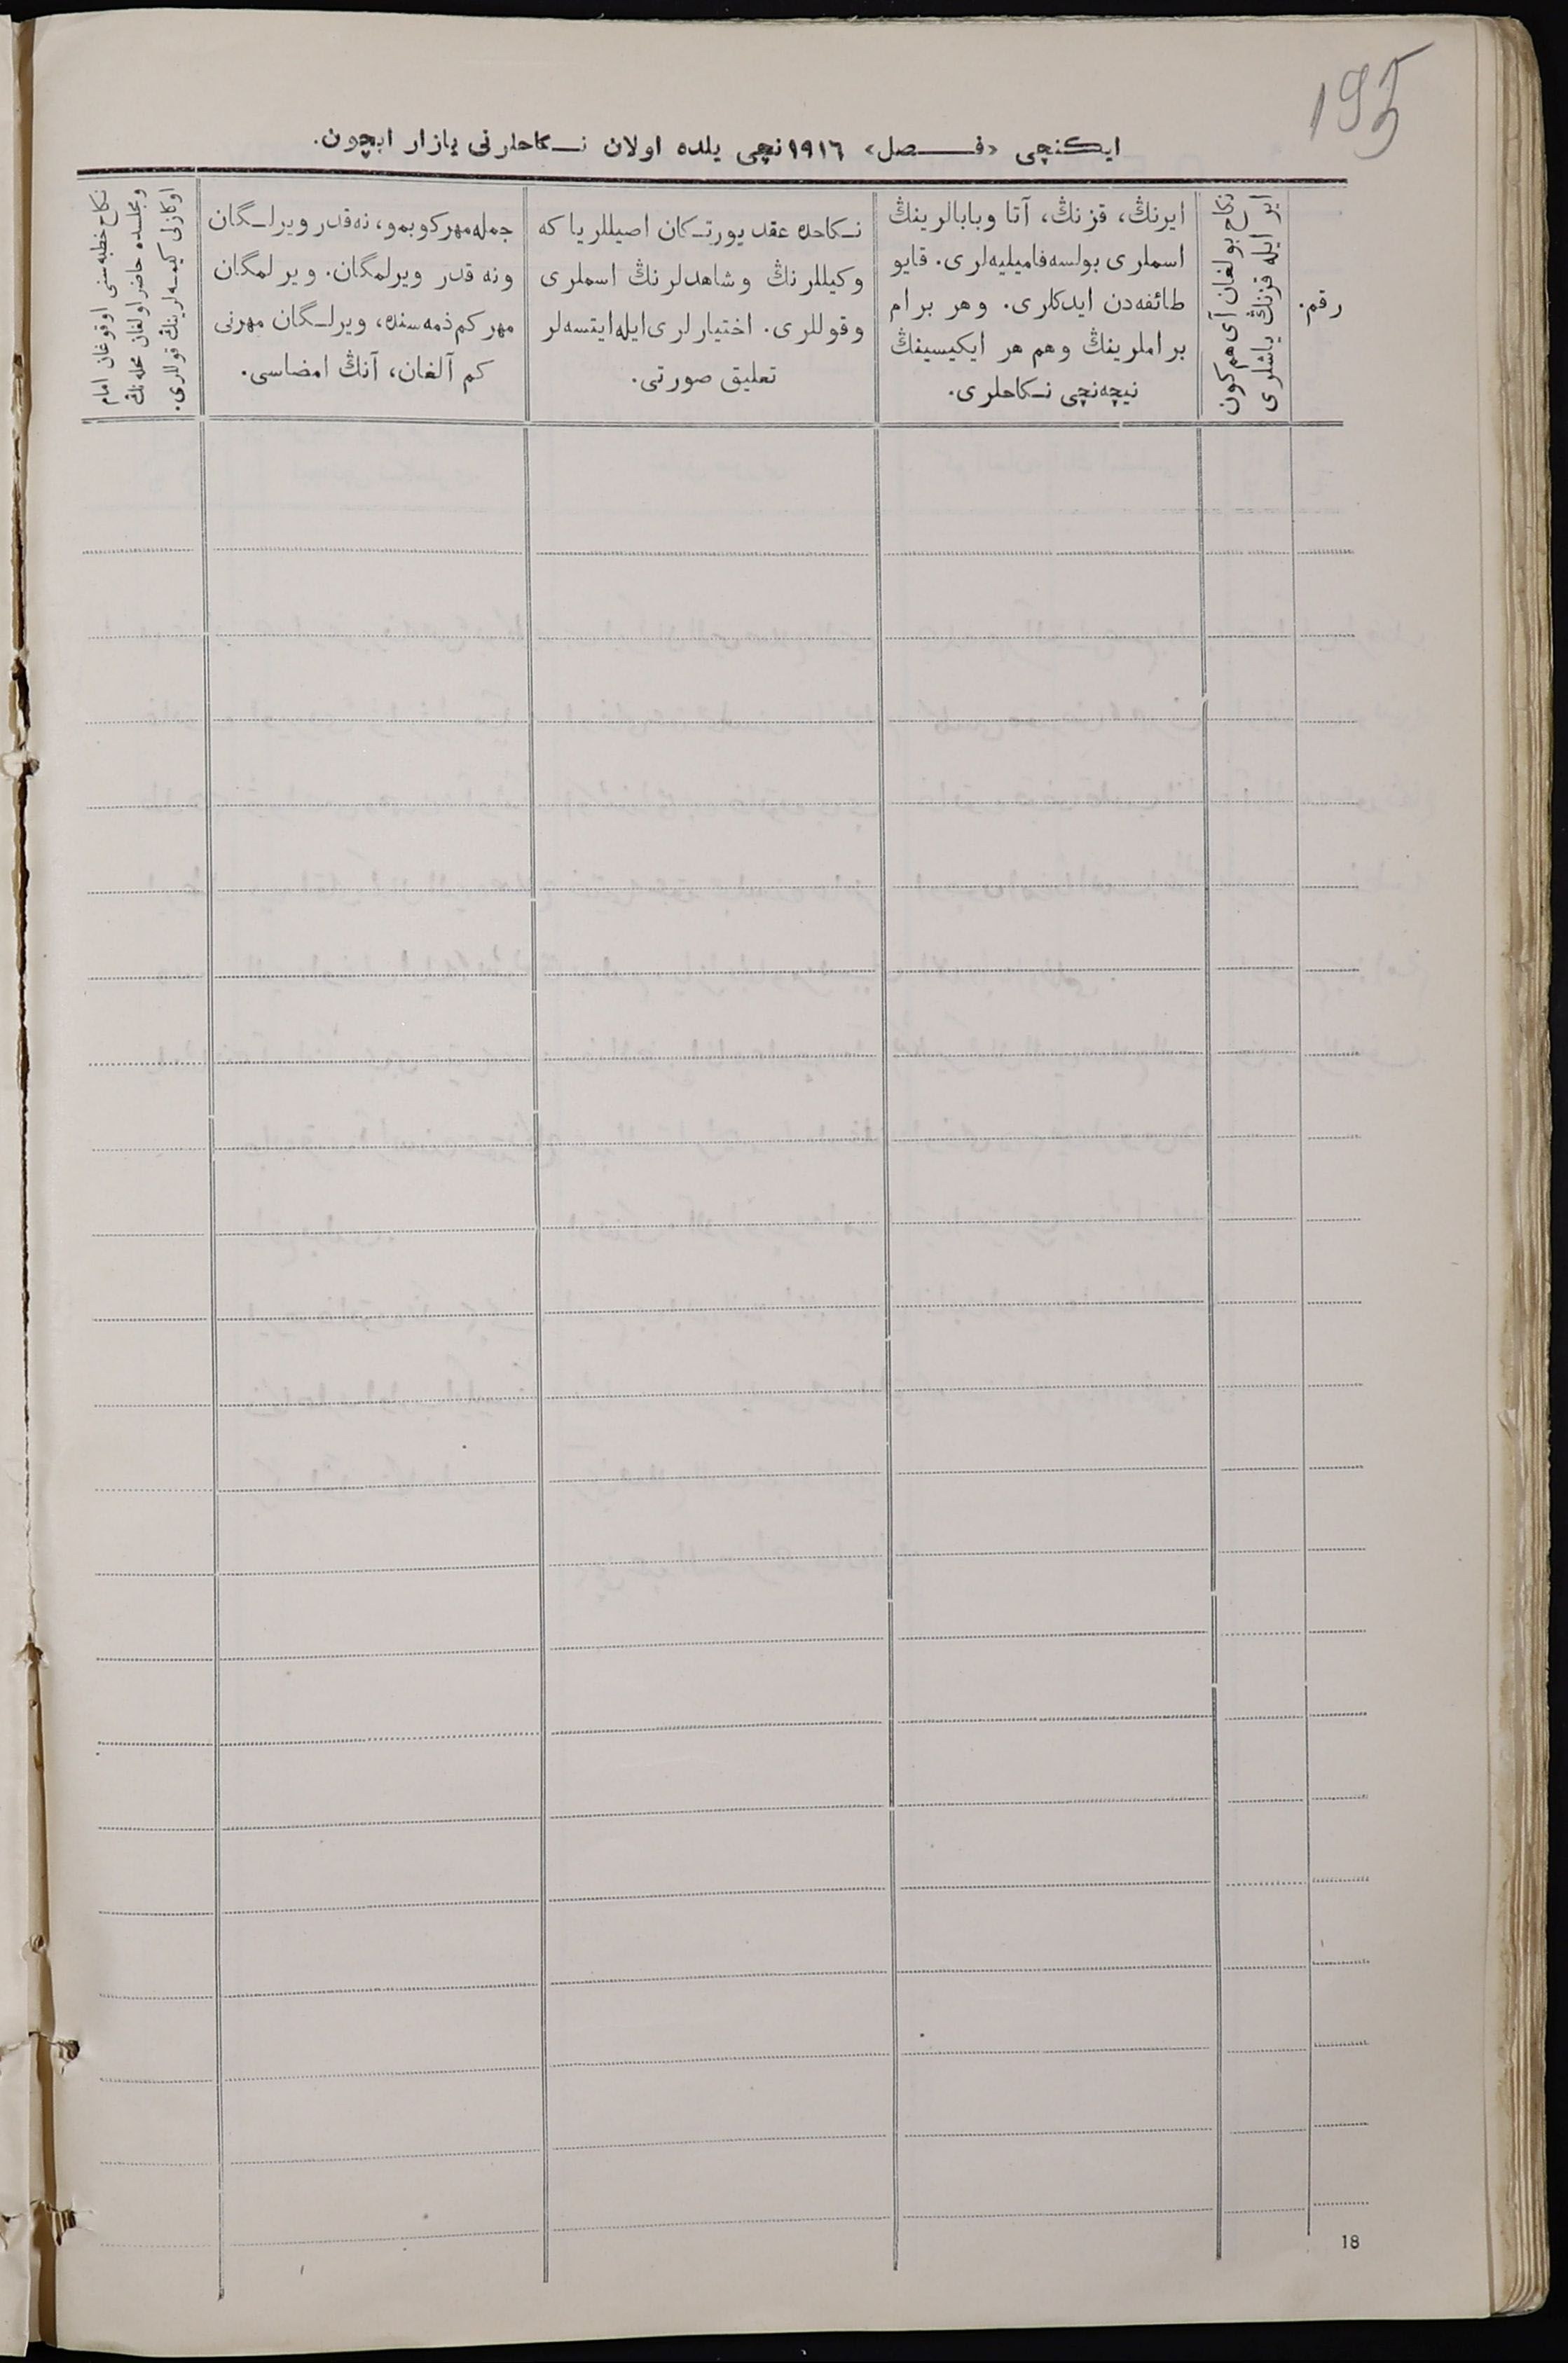 195
ایکنچی «فصل» ١٩١٦نچی یلده اولان نکاحلرنی یازار ایچون.
رقم.
نکاح بولغان آی هم کون
ایر ایله قزنڭ یاشلری
ایرنڭ، قزنڭ، آتا وبابالرینڭ
اسملری بولسه فامیلیه‌لری. قایو
طائفه‌دن ایدکلری. وهر برام
براملرینڭ وهم هر ایکیسینڭ
نیچه‌نچی نکاحلری.
نکاحده عقد یورتکان اصیللر یا که
وکیللرنڭ وشاهدلرنڭ اسملری
وقوللری. اختیارلری ایله ایتسه‌لر
تعلیق صورتی.
جمله مهر کوبمو، نه‌قدر ویرلگان
ونه قدر ویرلمگان. ویرلمگان
مهر کم ذمه‌سنده، ویرلگان مهرنی
کم آلغان، آنڭ امضاسی.
نکاح خطبه‌سنی اوقوغان امام
ومجلسده حاضر اولغان محله‌نڭ
اوکازلی کیمسه‌لرینڭ قوللری.
18